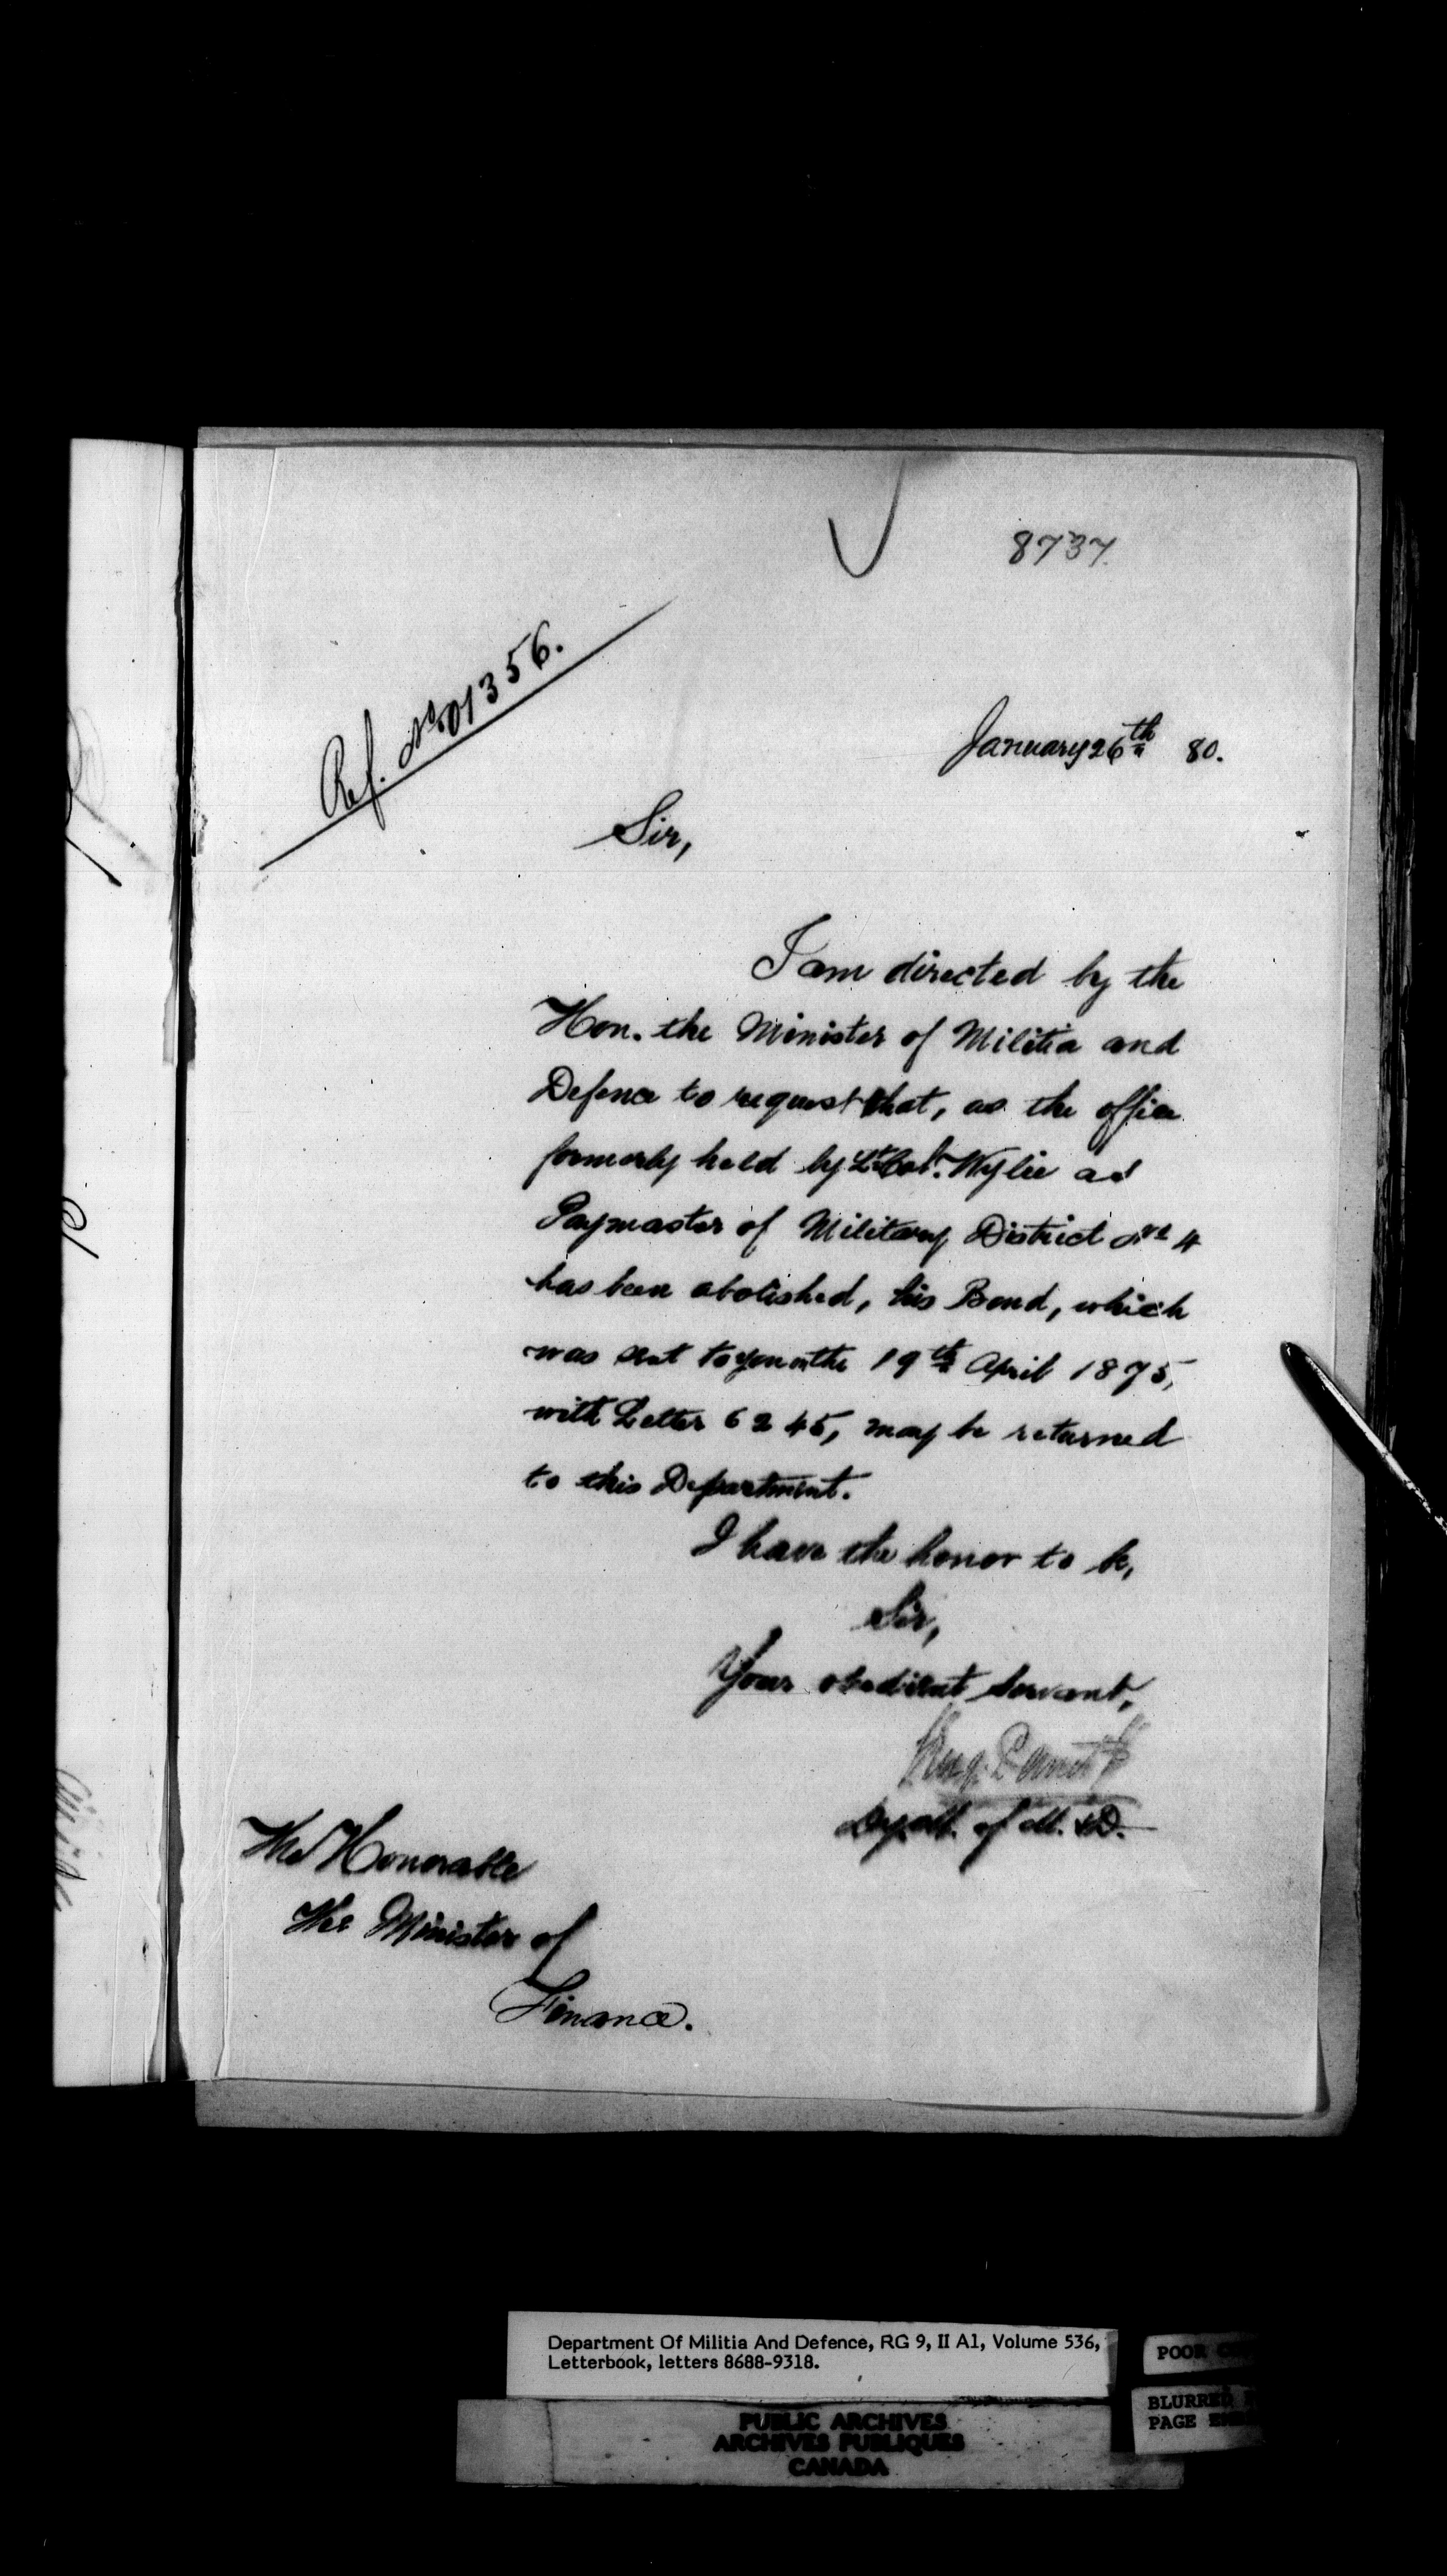 8737.
Ref. No 01356.
January 26th 80.
Sir,
I am directed by the
Hon. the Minister of Militia and
Defence to request that, as the office
formerly held by Lt. Col. Wylie as
Paymaster of Military District No 4
has been abolished, his Bond, which
was sent to you on the 19th April 1875,
with Letter 6245, may be returned
to this Department.
I have the honor to be,
Sir,
Your obedient Servant,
Panet
Dy. M. of M. & D.
The Honorable
The Minister of
Finance.
Department Of Militia And Defence, RG 9, II A1, Volume 536,
Letterbook, letters 8688-9318.
POOR
BLURRED
PAGE
PUBLIC ARCHIVES
ARCHIVES PUBLIQUES
CANADA